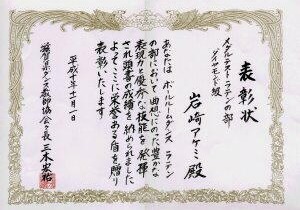 表彰状
メダルテスト ラテンの部
ダイヤモンド級
岩崎アケミ殿
あなたはボールルームダンス ラテン
の部において曲想にのった豊かな
表現力と優秀な技能を発揮
され頭書の成績を納められました
よってここに栄誉ある盾を贈り
表彰いたします
平成十年十一月一日
滋賀県ダンス教師協会会長 三木宏祐